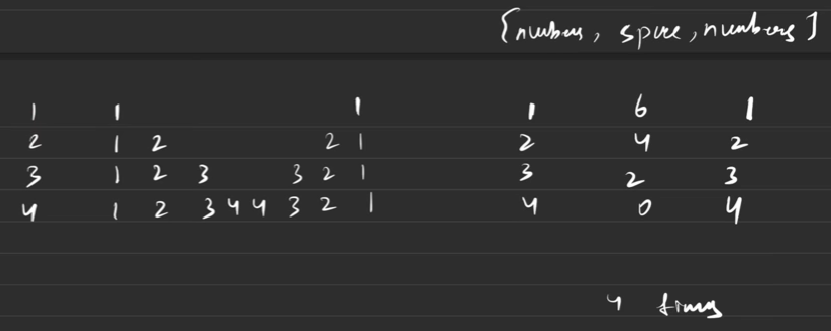 {numbers, space, numbers]
1 1 1 1 6 1
2 1 2 2 1 2 4 2
3 1 2 3 3 2 1 3 2 3
4 1 2 3 4 4 3 2 1 4 0 4
4 times